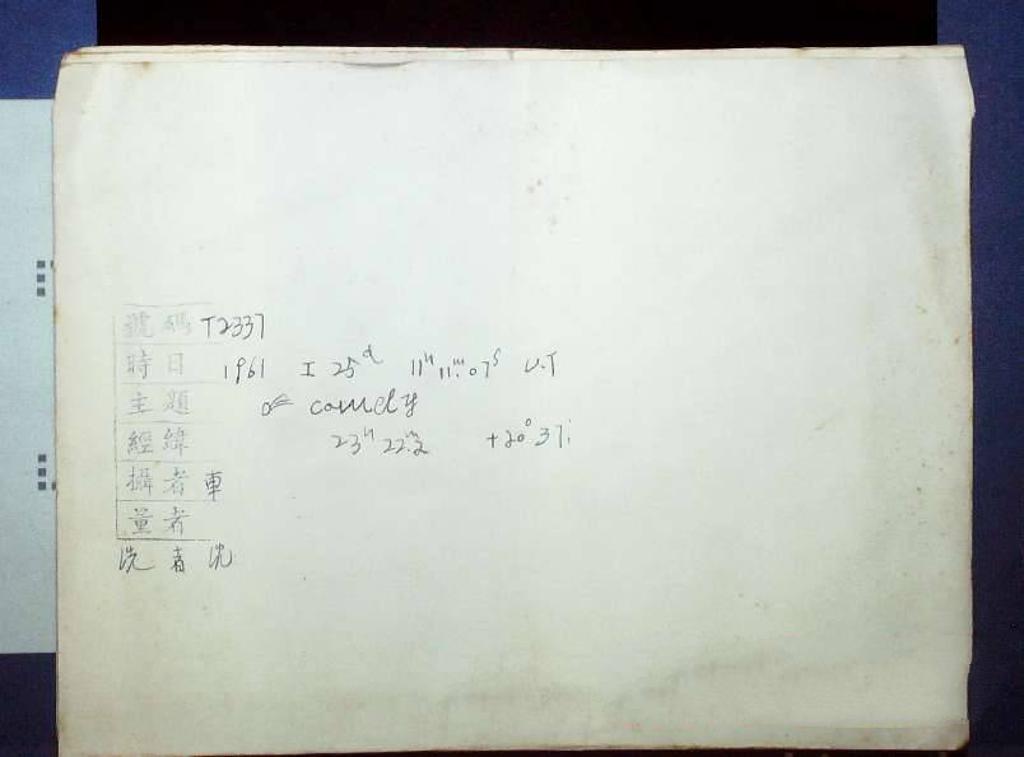 號碼 T2337
時日 1961 I 25ᵈ 11ʰ 11ᵐ.07ˢ U.T
主題 comety
經緯 23ʰ 22ᵐ.2 +20°.37
攝者 車
量者
洗者 沈